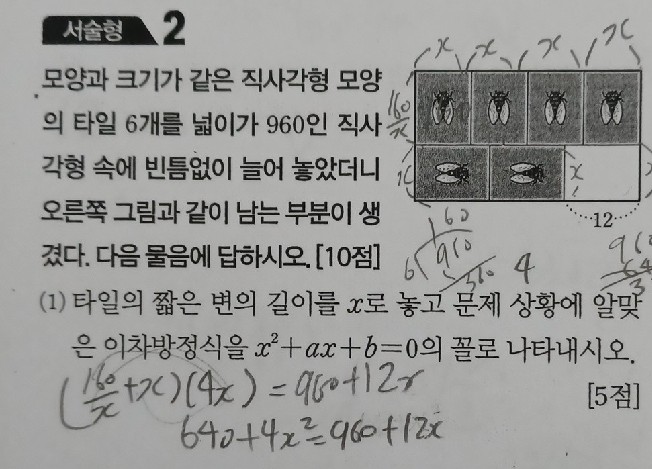 서술형 2
x x x x
모양과 크기가 같은 직사각형 모양
의 타일 6개를 넓이가 960인 직사
각형 속에 빈틈없이 늘어 놓았더니
오른쪽 그림과 같이 남는 부분이 생
겼다. 다음 물음에 답하시오. [10점]
160/x
x x
12
160
6 960
360 4
960
(1) 타일의 짧은 변의 길이를 x로 놓고 문제 상황에 알맞
은 이차방정식을 x²+ax+b=0의 꼴로 나타내시오.
[5점]
(160/x+x)(4x)=960+12x
640+4x²=960+12x